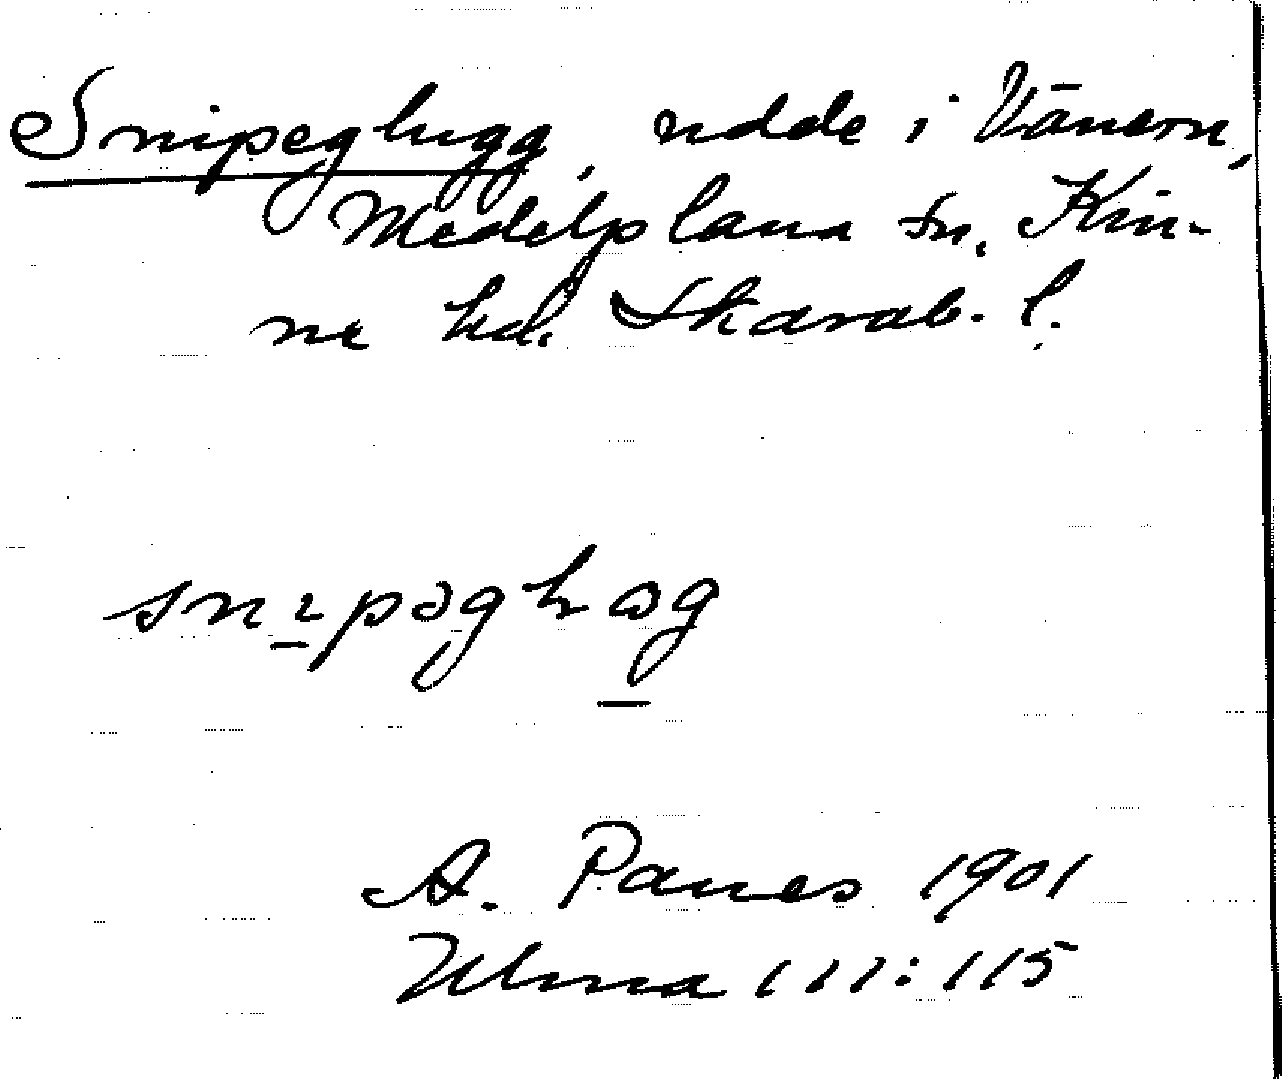 Snipeghugg, udde i Vänern,
Medelplana sn, Kin-
ne hd. Skarab. l.
snıpəghɷg
A. Panes 1901
Ulma 111:115